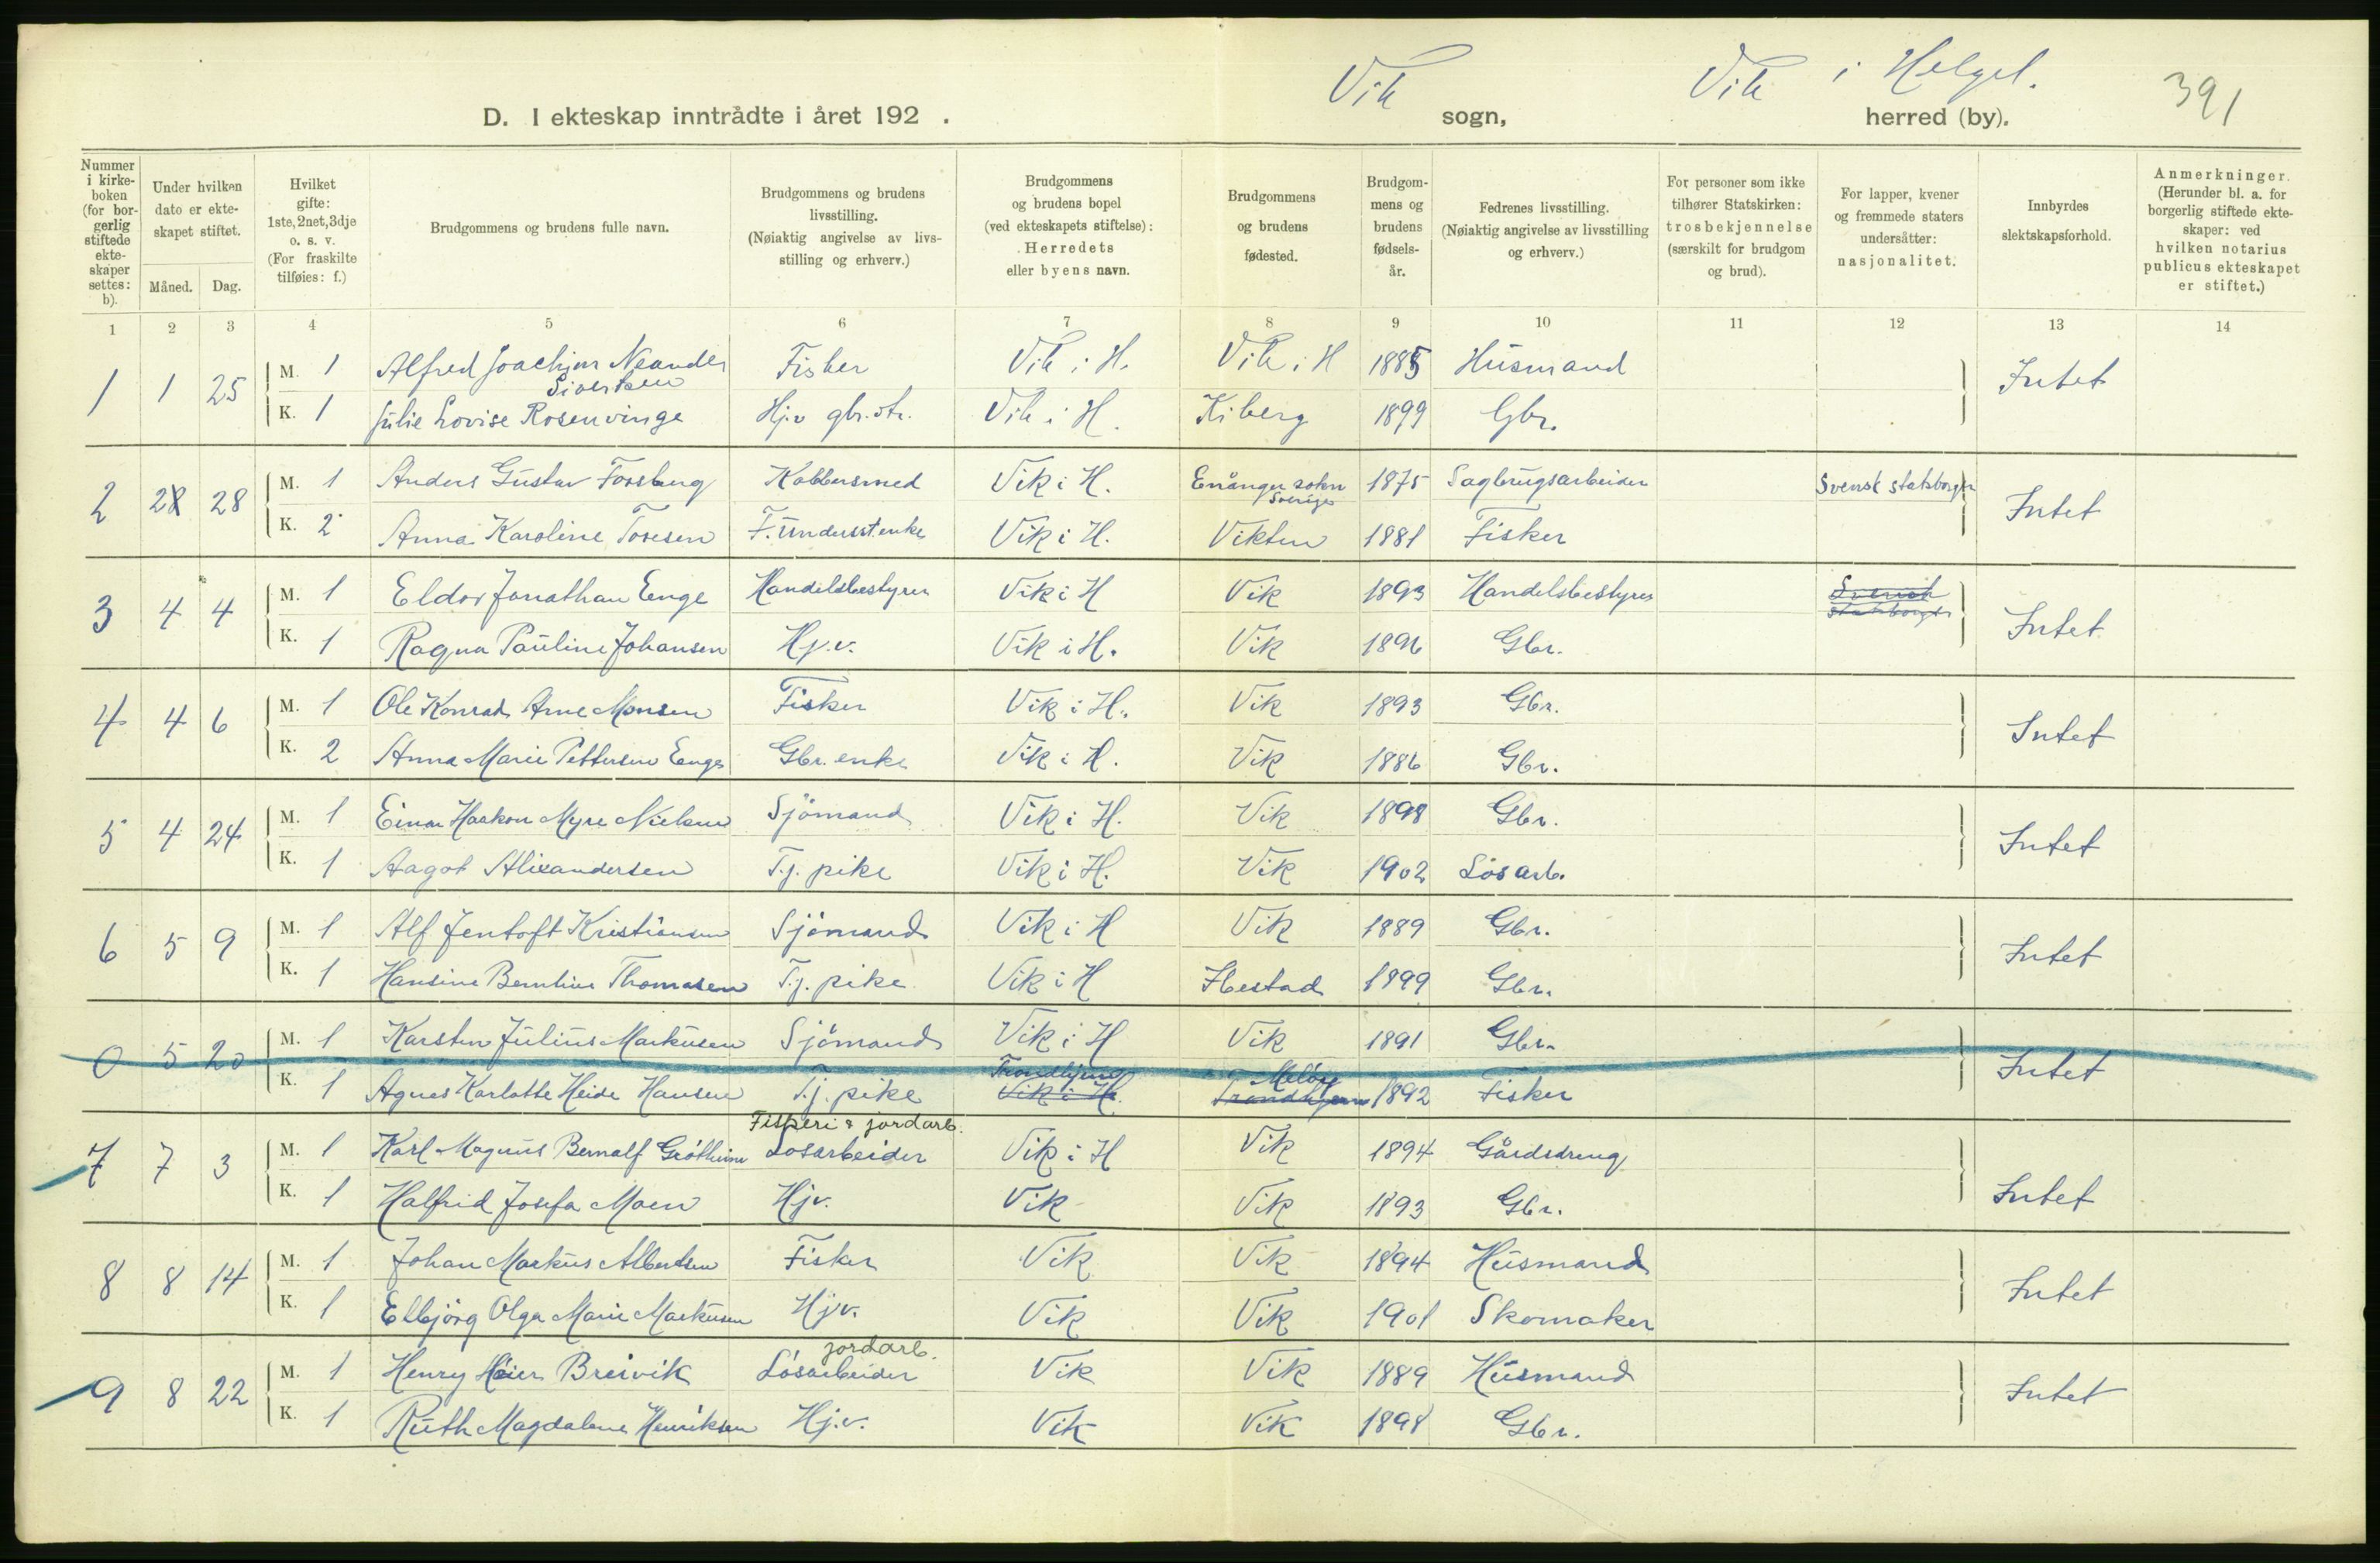 Vik i Helgel.
391
D. I ekteskap inntrådte i året 192 . Vik sogn, Vik herred (by).
Nummer i kirkeboken (for borgerlig stiftede ekteskaper settes: b).
Under hvilken dato er ekteskapet stiftet.
Måned. Dag.
Hvilket gifte: 1ste, 2net, 3dje o. s. v. (For fraskilte tilføies: f.)
Brudgommens og brudens fulle navn.
Brudgommens og brudens livsstilling. (Nøiaktig angivelse av livsstilling og erhverv.)
Brudgommens og brudens bopel (ved ekteskapets stiftelse): Herredets eller byens navn.
Brudgommens og brudens fødested.
Brudgommens og brudens fødselsår.
Fedrenes livsstilling. (Nøiaktig angivelse av livsstilling og erhverv.)
For personer som ikke tilhører Statskirken: trosbekjennelse (særskilt for brudgom og brud).
For lapper, kvener og fremmede staters undersåtter: nasjonalitet.
Innbyrdes slektskapsforhold.
Anmerkninger. (Herunder bl. a. for borgerlig stiftede ekteskaper: ved hvilken notarius publicus ekteskapet er stiftet.)
1 2 3 4 5 6 7 8 9 10 11 12 13 14
1 1 25 M. 1 Alfred Joachim Neander Sivertsen Fisker Vik i H. Vik i H 1885 Husmand Intet
K. 1 Julie Lovise Rosenvinge Hj.v gbr.dtr. Vik i H. Kiberg 1899 Gbr.
2 2 28 M. 1 Anders Gustav Forsberg Kobbersmed Vik i H. Enånger sokn Sverige 1875 Sagbrugsarbeider Svensk statsborger Intet
K. 2 Anna Karoline Tosesen F. understt.enke Vik i H. Vikten 1881 Fisker
3 4 4 M. 1 Eldor Jonathan Enge Handelsbestyrer Vik i H Vik 1893 Handelsbestyrer Svensk statsborger Intet
K. 1 Ragna Pauline Johansen Hj.v. Vik i H. Vik 1896 Gbr.
4 4 6 M. 1 Ole Konrad Arne Monsen Fisker Vik i H. Vik 1893 Gbr. Intet
K. 2 Anna Marie Pettersen Enge Gbr. enke Vik i H. Vik 1886 Gbr.
5 4 24 M. 1 Einar Haakon Myre Nielsen Sjömand Vik i H. Vik 1898 Gbr. Intet
K. 1 Aagot Alexandersen T.j. pike Vik i H. Vik 1902 Lösarb.
6 5 9 M. 1 Alf Jentoft Kristiansen Sjömand Vik i H Vik 1889 Gbr. Intet
K. 1 Hansine Berntine Thomasen T.j. pike Vik i H Ibestad 1899 Gbr.
0 5 20 M. 1 Karsten Julius Markusen Sjömand Vik i H Vik 1891 Gbr. Intet
K. 1 Agnes Karlotte Heide Hansen T.j. pike Trondhjem Vik i H. Melöy Trondhjem 1892 Fisker
Fiskeri & jordarb.
7 7 3 M. 1 Karl Magnus Bernalf Gröttheim Losarbeider Vik i H Vik 1894 Gårdsdreng Intet
K. 1 Halfrid Josefa Moen Hjv. Vik Vik 1893 Gbr.
8 8 14 M. 1 Johan Markus Albertsen Fisker Vik Vik 1894 Husmand Intet
K. 1 Elbjörg Olga Marie Markusen Hjv. Vik Vik 1901 Skomaker
jordarb.
9 8 22 M. 1 Henry Meier Breivik Lösarbeider Vik Vik 1889 Husmand Intet
K. 1 Ruth Magdalene Henriksen Hj.v. Vik Vik 1898 Gbr.